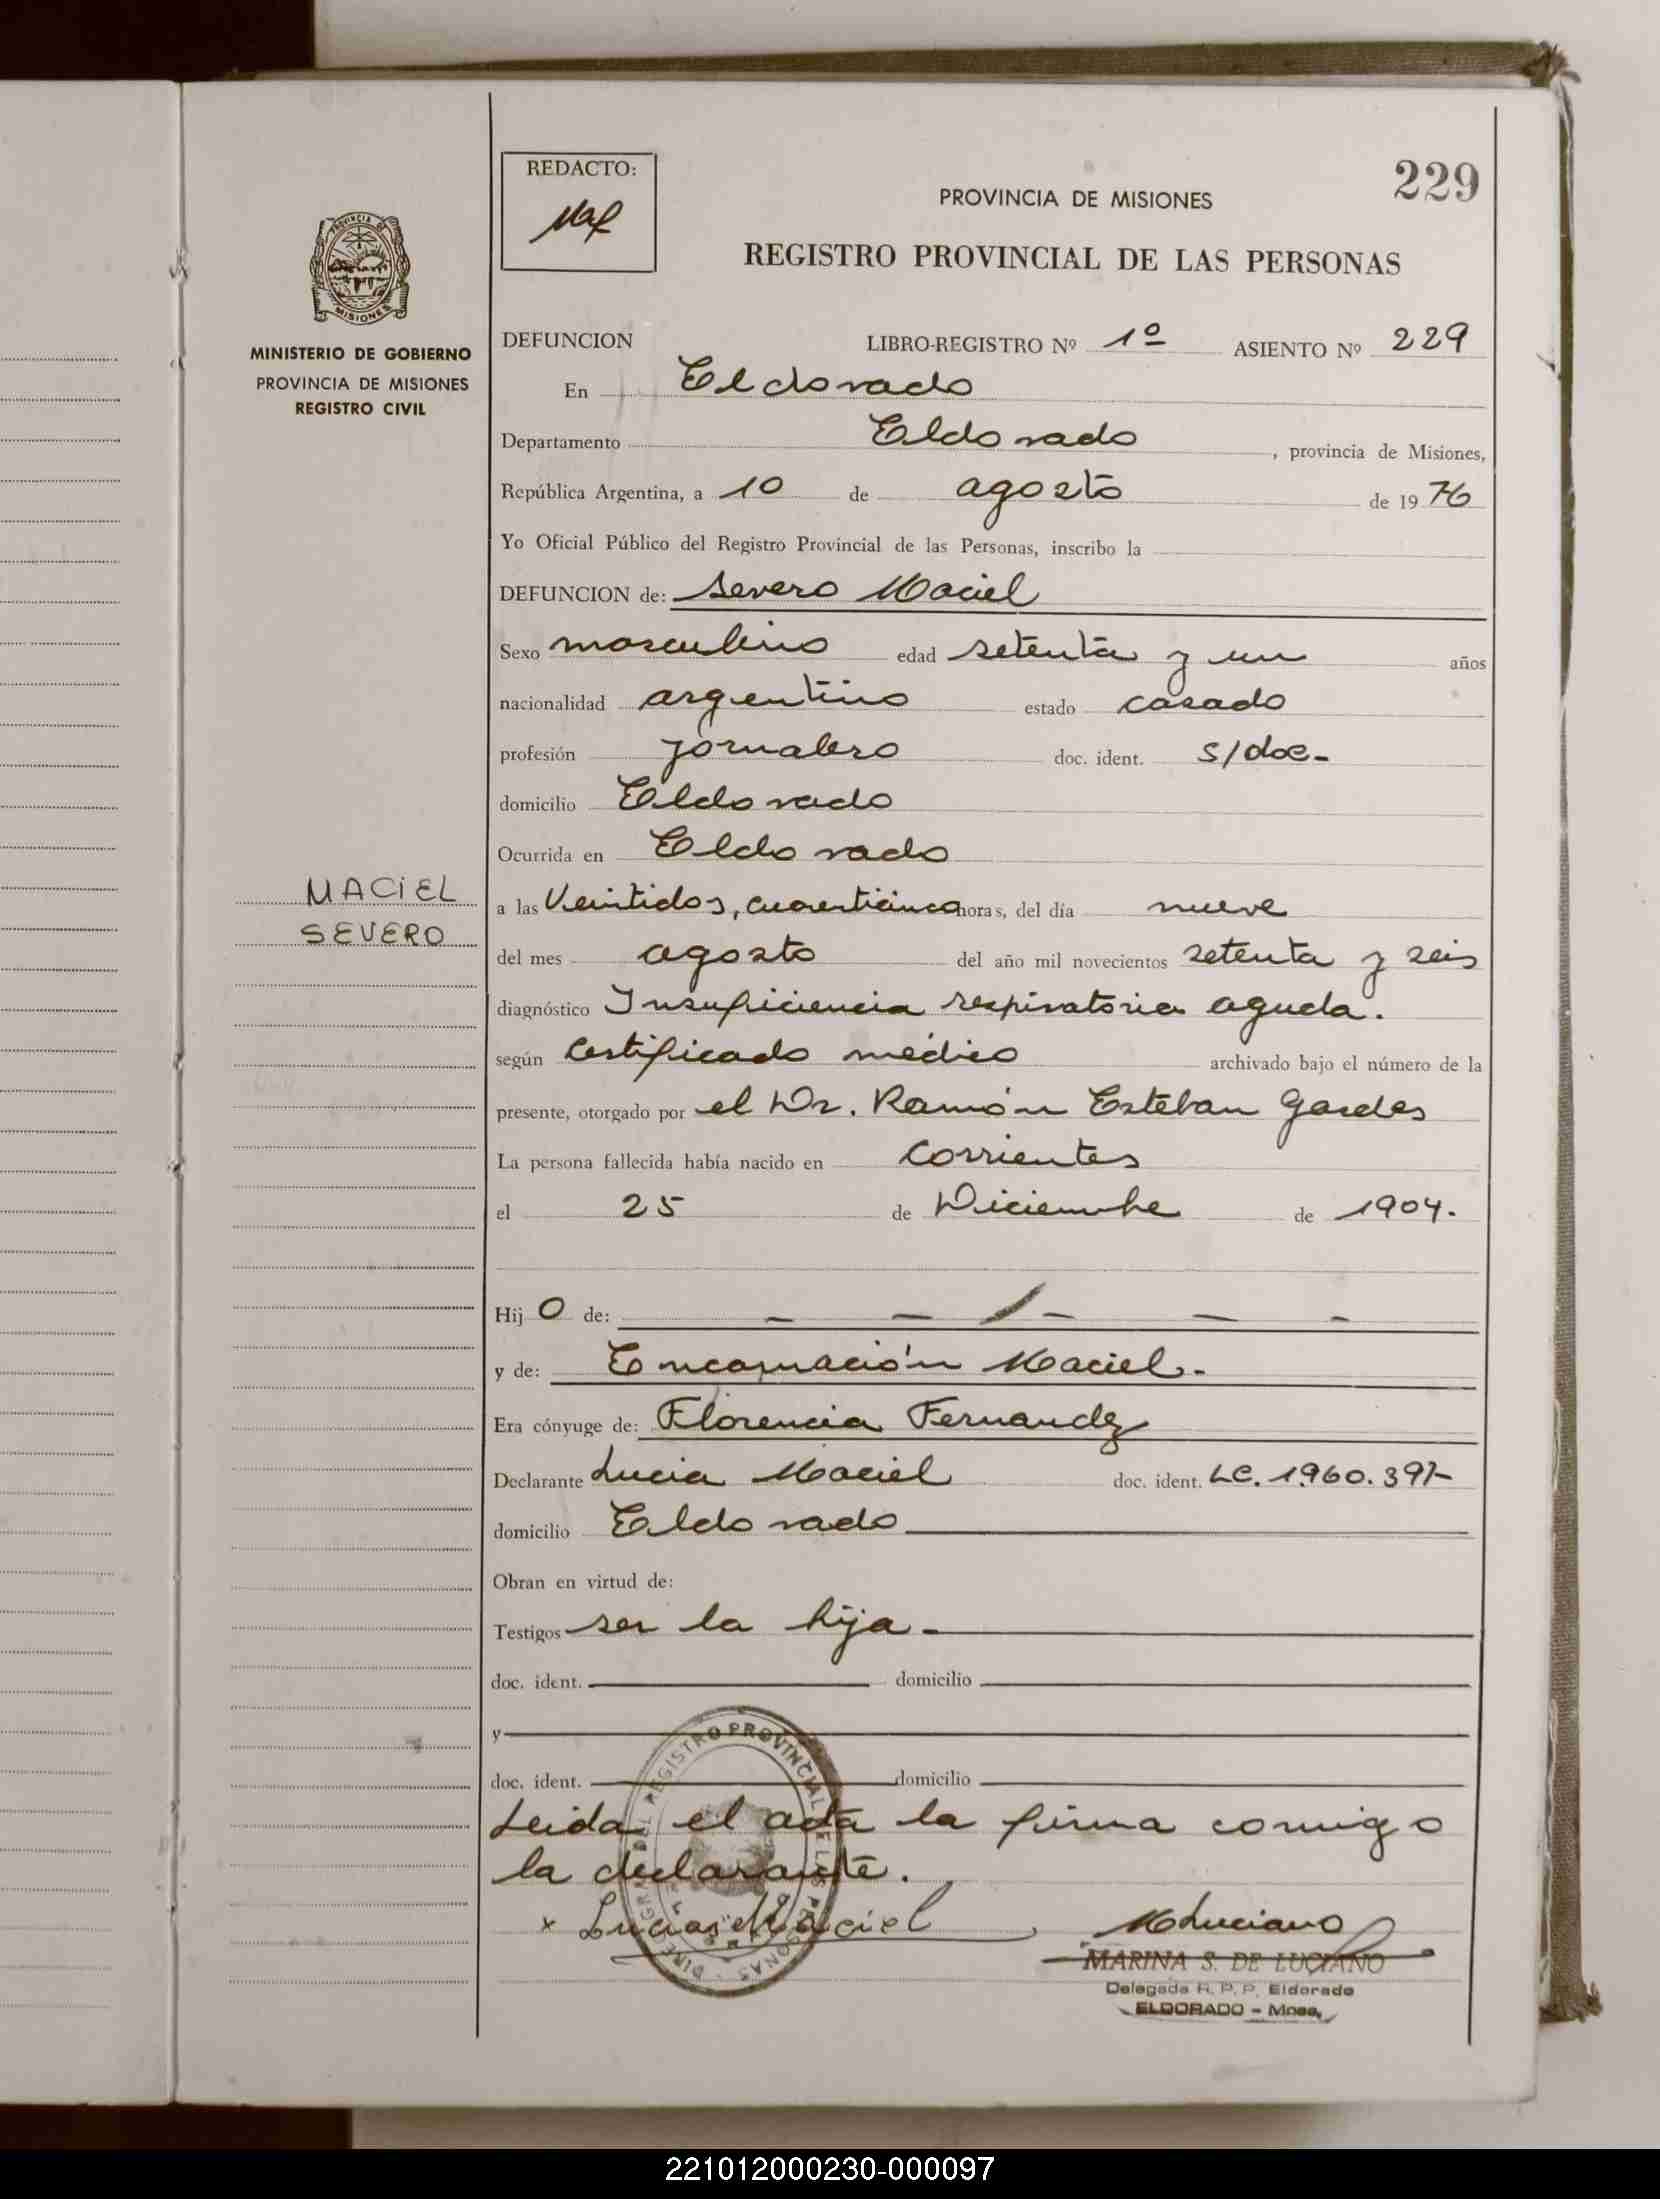 229
REDACTO:
PROVINCIA DE MISIONES
REGISTRO PROVINCIAL DE LAS PERSONAS
PROVINCIA
MISIONES
MINISTERIO DE GOBIERNO
PROVINCIA DE MISIONES
REGISTRO CIVIL
DEFUNCION LIBRO-REGISTRO Nº 1º ASIENTO Nº 229
En Eldorado
Departamento Eldorado, provincia de Misiones,
República Argentina, a 10 de agosto de 1976
Yo Oficial Público del Registro Provincial de las Personas, inscribo la
DEFUNCION de: Severo Maciel
Sexo masculino edad setenta y un años
nacionalidad argentino estado casado
profesión jornalero doc. ident. s/doc-
domicilio Eldorado
Ocurrida en Eldorado
MACIEL
SEVERO
a las Veintidos, cuarenticinco horas, del día nueve
del mes agosto del año mil novecientos setenta y seis
diagnóstico Insuficiencia respiratoria aguda.
según Certificado médico archivado bajo el número de la
presente, otorgado por el Dr. Ramón Esteban
La persona fallecida había nacido en Corrientes
el 25 de Diciembre de 1904.
Hijo de: - - / - - -
y de: Encarnación Maciel.-
Era cónyuge de: Florencia Fernandez
Declarante Lucia Maciel doc. ident. LC. 1.960.397-
domicilio Eldorado
Obran en virtud de:
Testigos ser la hija-
doc. ident. domicilio
y
doc. ident. domicilio
Leida el acta la firma comigo
la declarante.
x Lucia Maciel MLuciano
REGISTRO PROVINCIAL DE LAS PERSONAS
MARINA S. DE LUCIANO
Delegada R. P. P. Eldorado
ELDORADO - Mnes.
221012000230-000097